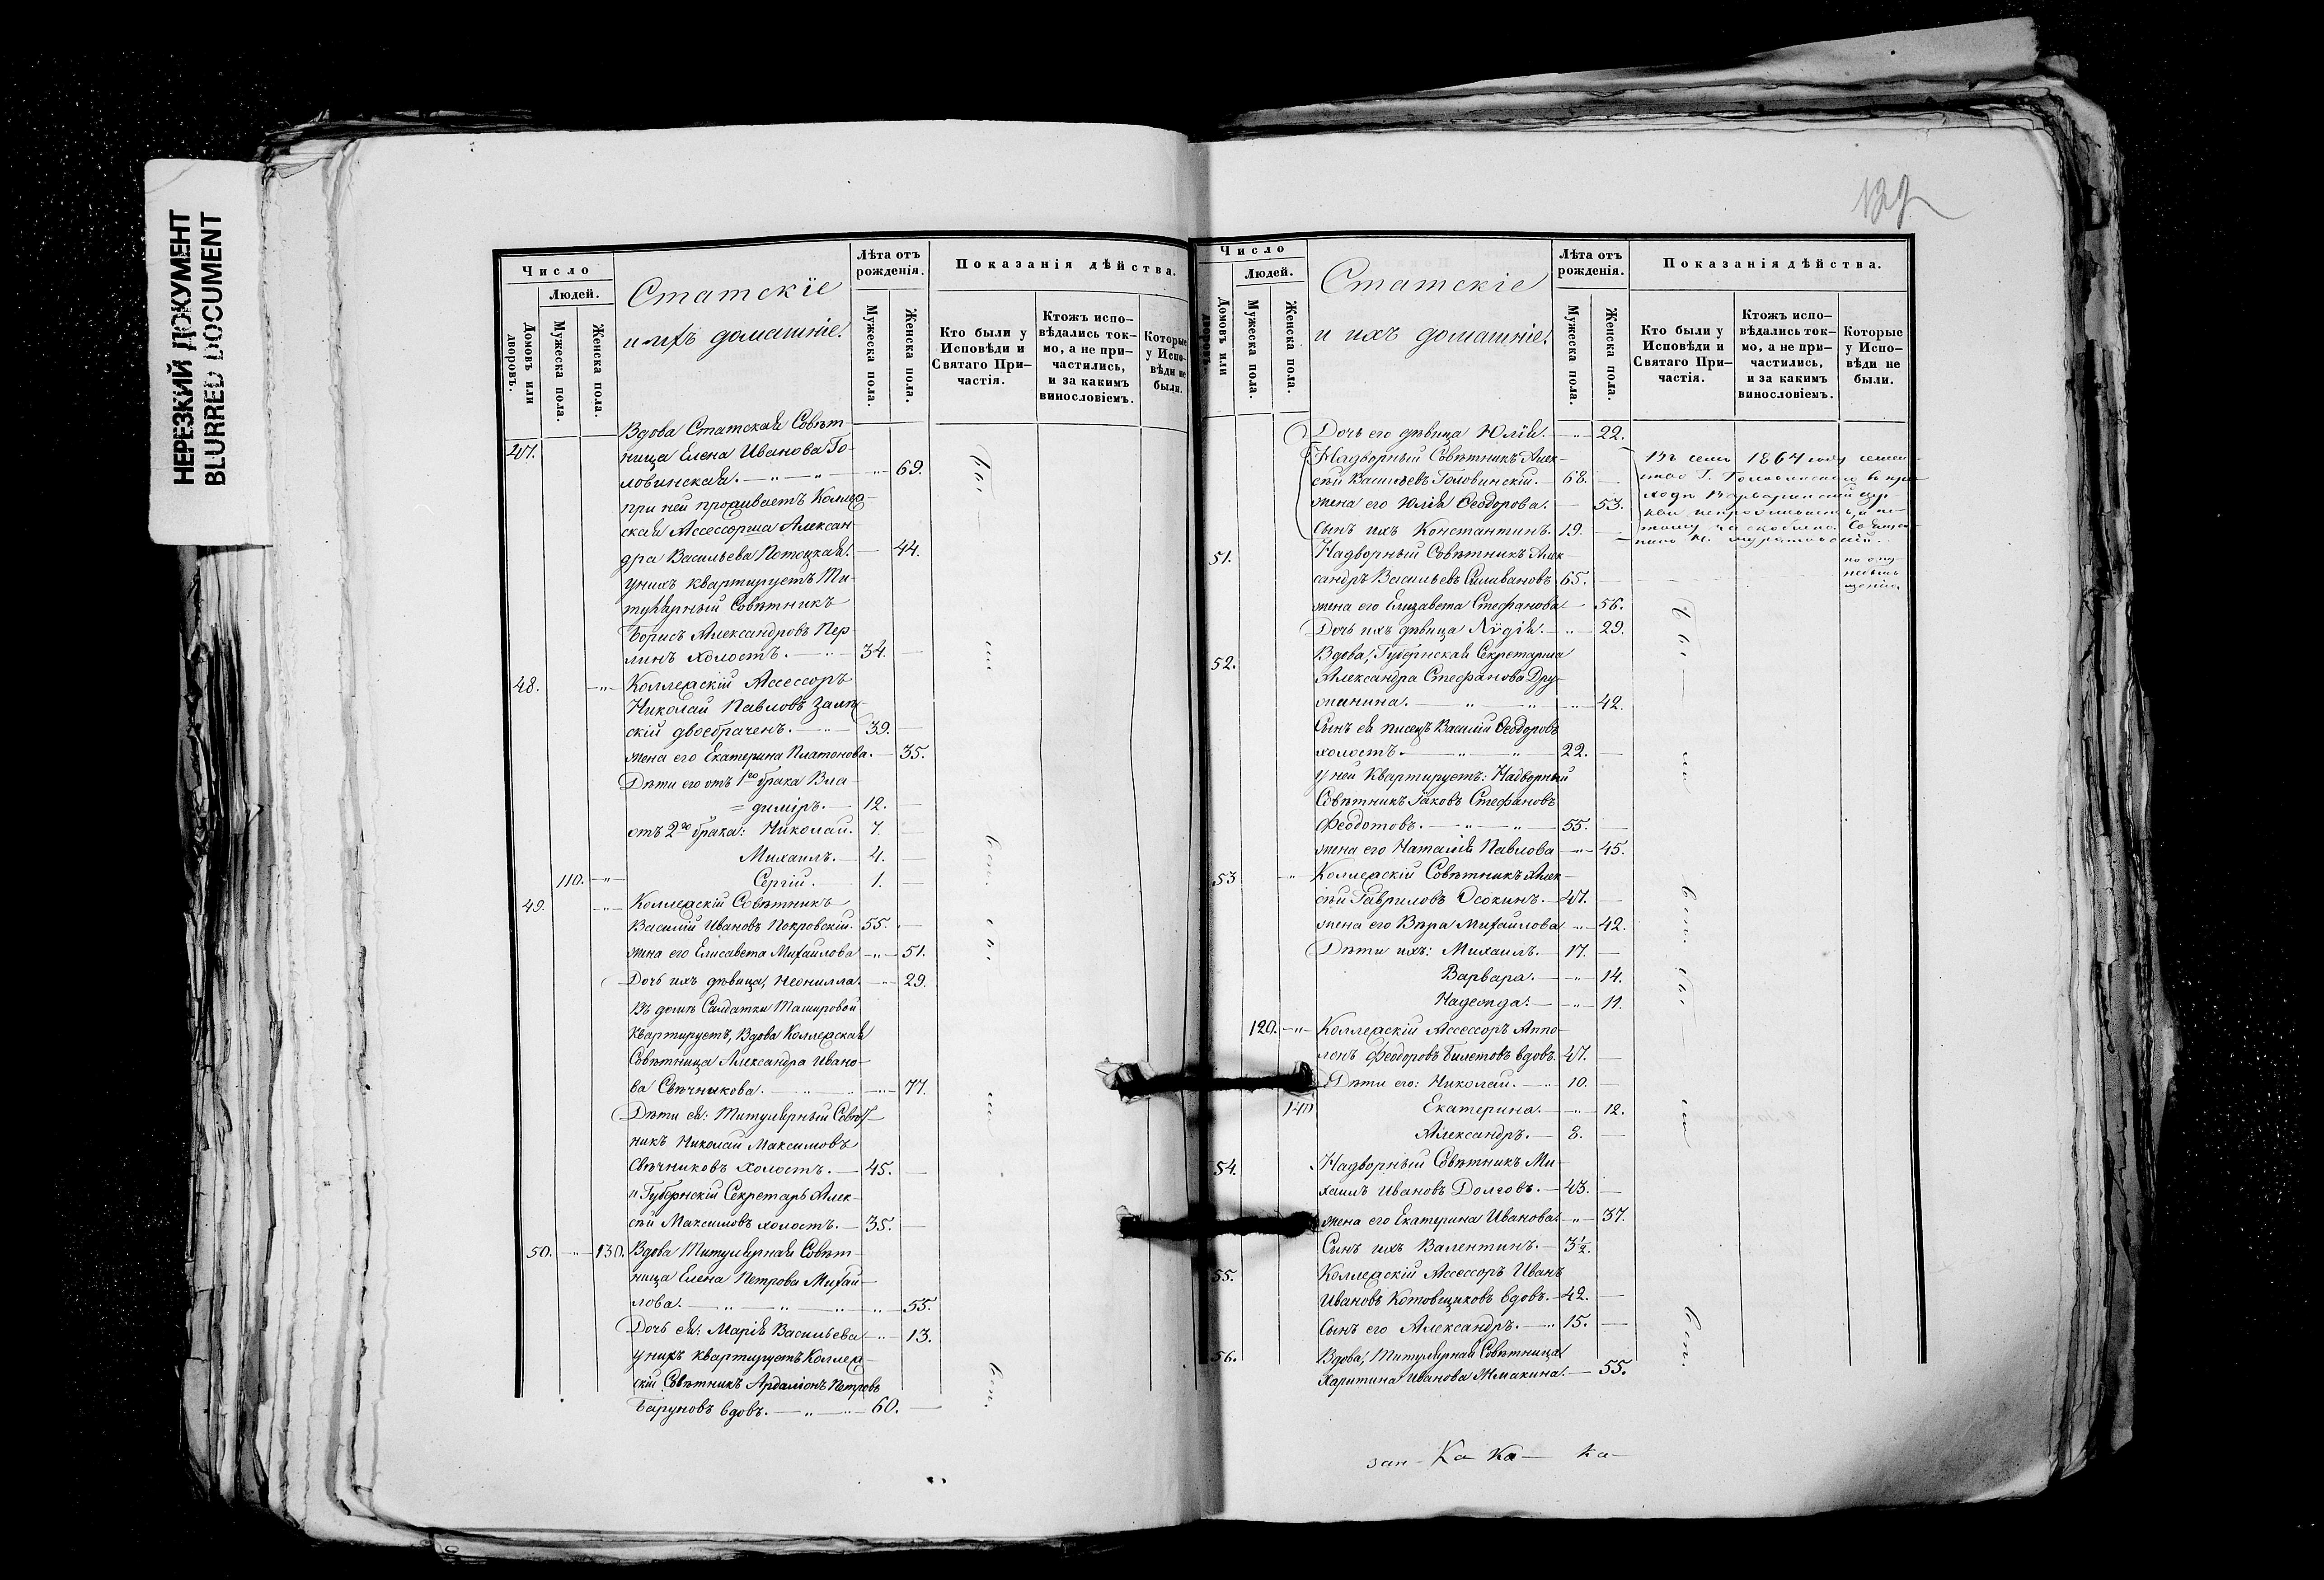 НЕРЕЗКИЙ ДОКУМЕНТ
BLURRED DOCUMENT
Число
Людей.
Домовъ или дворовъ.
Мужеска пола.
Женска пола.
Статскіе
и ихъ домашніе.
Лѣта отъ рожденія.
Мужеска пола.
Женска пола.
Показанія дѣйства.
Кто были у Исповѣди и Святаго При-частія.
Ктожъ испо-вѣдались ток-мо, а не при-частились, и за какимъ винословіемъ.
Которые у Испо-вѣди не были.
Вдова Статская Совѣт-
47. ница Елена Иванова Го-
ловинская. 69.
при ней проживаетъ Коллеж-
ская Ассессорша Алексан-
дра Васильева Потоцкая. 44.
у нихъ квартируетъ Ти-
тулярный Совѣтникъ
Борисъ Александровъ Пер-
линъ холостъ. 34.
48. Коллежскій Ассессоръ
Николай Павловъ
скій двоебраченъ. 39.
жена его Екатерина Платонова. 35.
Дѣти его отъ 1го брака Вла-
= диміръ. 12.
отъ 2го брака: Николай. 7.
Михаилъ. 4.
110. Сергій. 1.
49. Коллежскій Совѣтникъ
Василій Ивановъ Покровскій. 55.
жена его Елисавета Михайлова 51.
Дочь ихъ дѣвица, Неонилла. 29.
Въ домѣ Солдатки Машировой
квартируетъ, Вдова Коллежская
Совѣтница Александра Ивано-
ва Свѣчникова. 77.
Дѣти ея: Титулярный Совѣт-
никъ Николай Максимовъ
Свѣчниковъ холостъ. 45.
и Губернскій Секретарь Алек-
сѣй Максимовъ холостъ. 35.
50. 130. Вдова Титулярная Совѣт-
ница Елена Петрова Михай-
лова. 55.
Дочь ея: Марія Васильева 13.
у нихъ квартируетъ Коллеж-
скій Совѣтникъ Ардаліонъ Петровъ
Баруновъ вдовъ. 60.
бы-
ли
вси.
бы-
ли
вси.
Число
Людей.
Домовъ или дворовъ.
Мужеска пола.
Женска пола.
Статскіе
и ихъ домашніе.
Лѣта отъ рожденія.
Мужеска пола.
Женска пола.
Показанія дѣйства.
Кто были у Исповѣди и Святаго При-частія.
Ктожъ испо-вѣдались ток-мо, а не при-частились, и за какимъ винословіемъ.
Которые у Испо-вѣди не были.
Дочь его дѣвица Юлія. 22.
Надворный Совѣтникъ Алек-
сѣй Васильевъ Головинскій. 68.
жена его Юлія Ѳеодорова. 53.
сынъ ихъ Константинъ. 19.
Въ семъ 1864 году семей-
ство Г. Головинскаго въ при-
ходѣ Варваринской цер-
кви не проживаетъ, а по-
тому
51. Надворный Совѣтникъ Алек-
сандръ Васильевъ Селивановъ 65.
по опу-
щенію.
жена его Елизавета Стефанова 56.
Дочь ихъ дѣвица Лѵдія. 29.
52. Вдова, Губернская Секретарша
Александра Стефанова Дру-
жинина. 42.
Сынъ ея писецъ Василій Ѳеодоровъ
холостъ. 22.
у ней квартируетъ: Надворный
Совѣтникъ Іаковъ Стефановъ
Ѳеодотовъ. 55.
жена его Наталія Павлова 45.
53 Коллежскій Совѣтникъ Алек-
сѣй Гавриловъ Осокинъ. 47.
жена его Вѣра Михайлова 42.
Дѣти ихъ: Михаилъ. 17.
Варвара. 14.
Надежда. 11.
120. Коллежскій Ассессоръ Аппо-
лонъ Ѳеодоровъ Билетовъ вдовъ. 47.
Дѣти его: Николай. 10.
140 Екатерина. 12.
Александръ. 8.
54. Надворный Совѣтникъ Ми-
хаилъ Ивановъ Долговъ. 43.
жена его Екатерина Иванова. 37.
Сынъ ихъ Валентинъ. 3½.
55. Коллежскій Ассессоръ Иванъ
Ивановъ Котовщиковъ вдовъ. 42.
Сынъ его Александръ. 15.
56. Вдова, Титулярная Совѣтница
Харитина Иванова 55.
бы-
ли
вси.
бы-
ли
вси.
Ка Ка- ка-